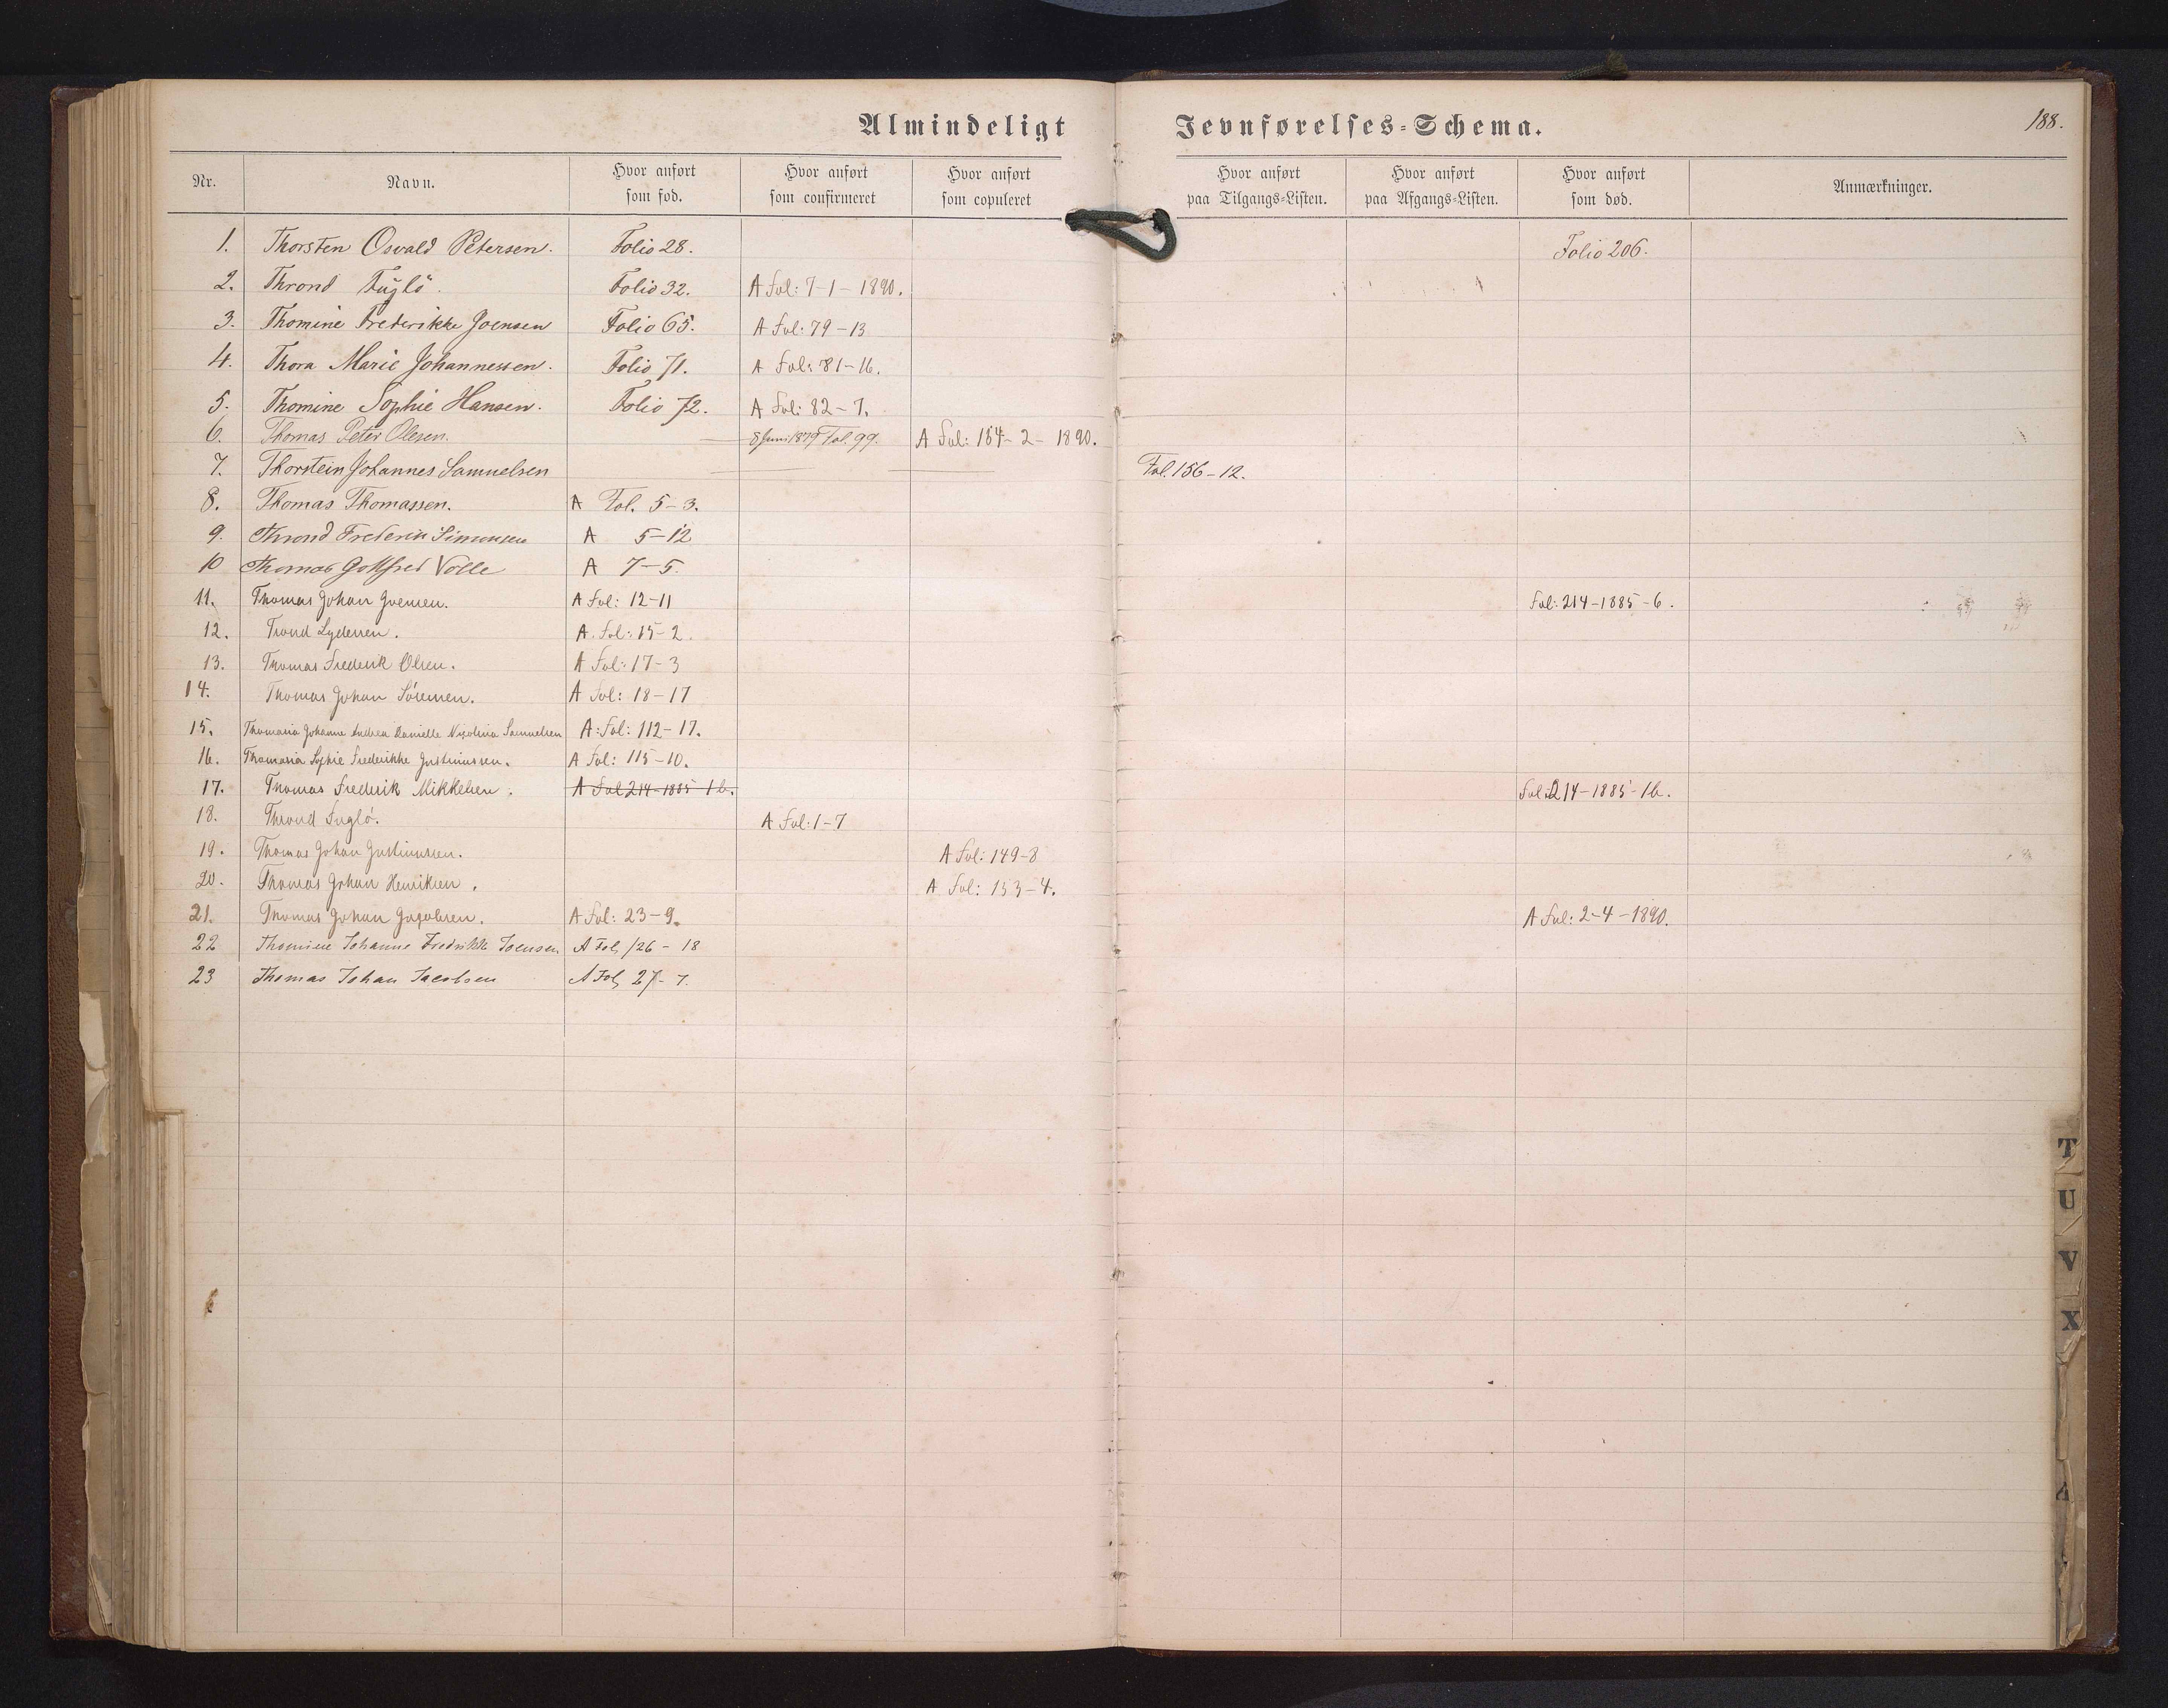 Almindeligt Jevnførelses-Schema.
188.
Nr. Navn. Hvor anført som fød. Hvor anført som confirmeret Hvor anført som copuleret Hvor anført paa Tilgangs-Listen. Hvor anført paa Afgangs-Listen. Hvor anført som død. Anmærkninger.
1. Thorsten Osvald Petersen. Folio 28. Folio 206.
2. Thrond Fuglö. Folio 32. A Fol: 7-1-1890.
3. Thomine Frederikke Joensen Folio 65. A Fol: 79-13
4. Thora Marie Johannessen. Folio 71. A Fol: 81-16.
5. Thomine Sophie Hansen. Folio 72. A Fol: 82-7.
6. Thomas Peter Olesen. 8 Juni 1879 Fol. 99. A Fol: 154-2-1890.
7. Thorstein Johannes Samuelsen Fol. 156-12.
8. Thomas Thomassen. A Fol. 5-3.
9. Thrond Frederik Simonsen A 5-12
10 Thomas Gottfred A 7-5.
11. Thomas Johan Joensen. A Fol: 12-11 Fol: 214-1885-6.
12. Trond Lydersen. A. Fol: 15-2.
13. Thomas Frederik Olsen. A Fol: 17-3
14. Thomas Johan Sörensen. A Fol: 18-17
15. Thomasia Johanne Andrea Danielle Nicolina Samuelsen A: Fol: 112-17.
16. Thomasia Sophie Frederikke Justinussen. A Fol: 115-10.
17. Thomas Frederik Mikkelsen. A Fol 214-1885 16. Fol: 214-1885-16.
18. Thrond Fuglö. A Fol: 1-7
19. Thomas Johan Justinussen. A Fol: 149-8
20. Thomas Johan Henriksen. A Fol: 153-4.
21. Thomas Johan Jacobsen. A Fol: 23-9. A Fol: 2-4-1890.
22 Thomine Johanne Fredrikke Joensen. A Fol, 126-18
23 Thomas Johan Jacobsen A Fol, 27-7.
T
U
V
X